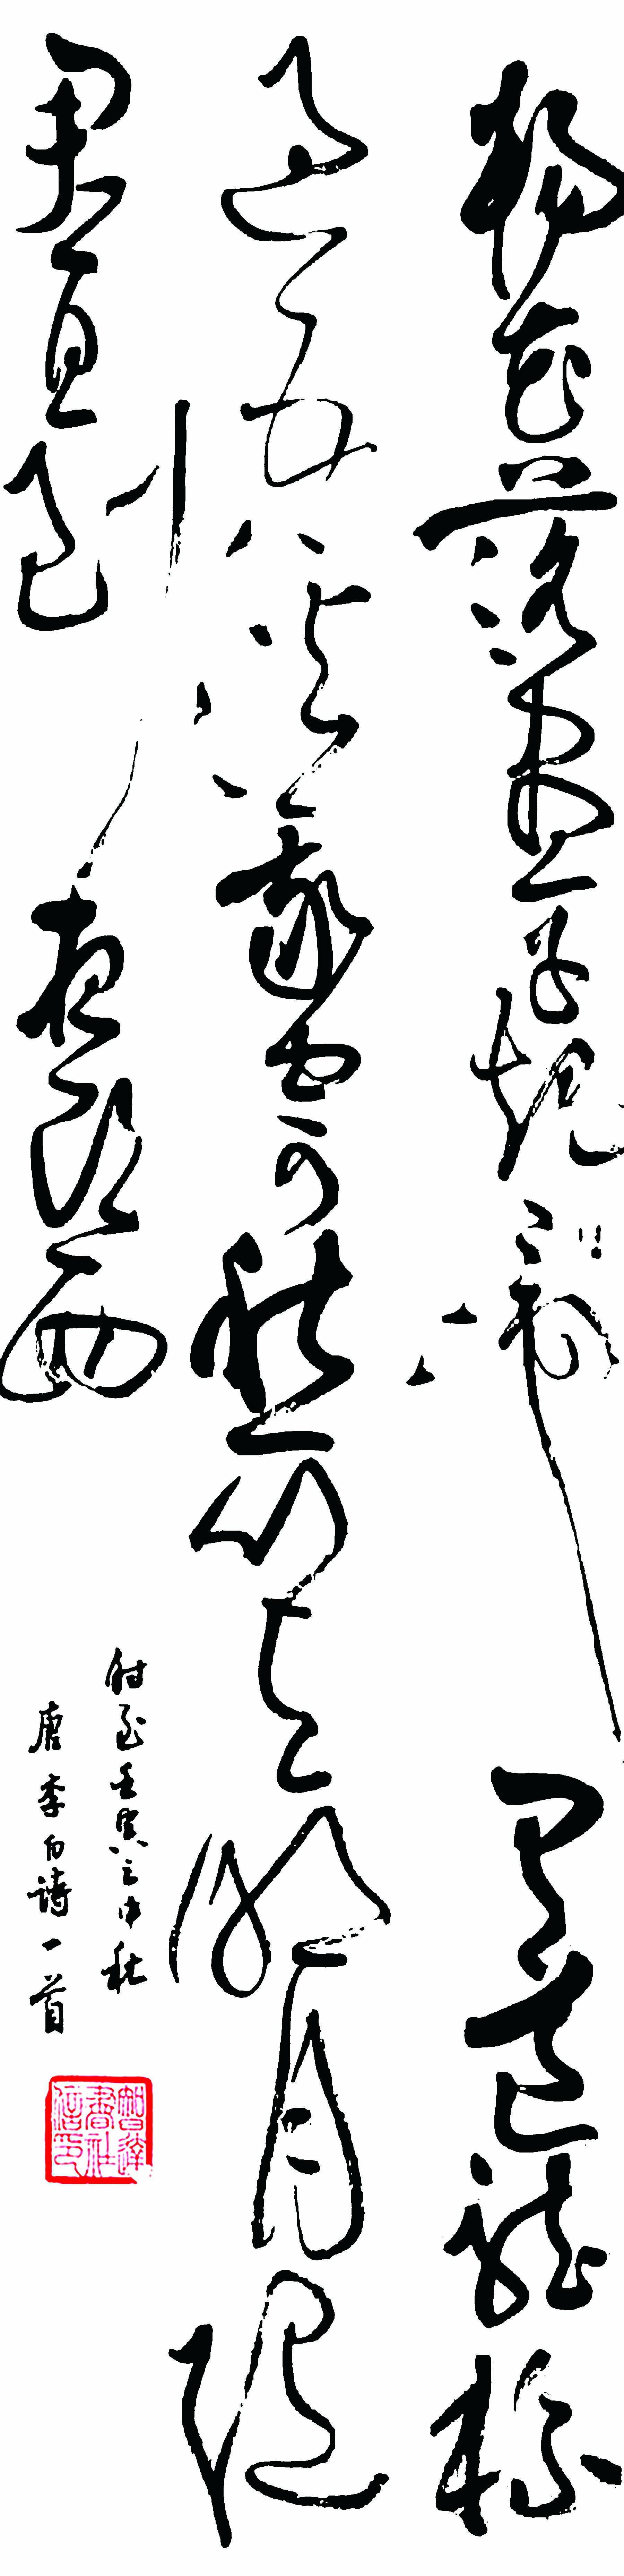 楊花落盡子規啼聞道龍標
過五溪我寄愁心與明月隨
君直到夜郎西
時至壬寅之中秋
唐李白詩一首
智達書社信印